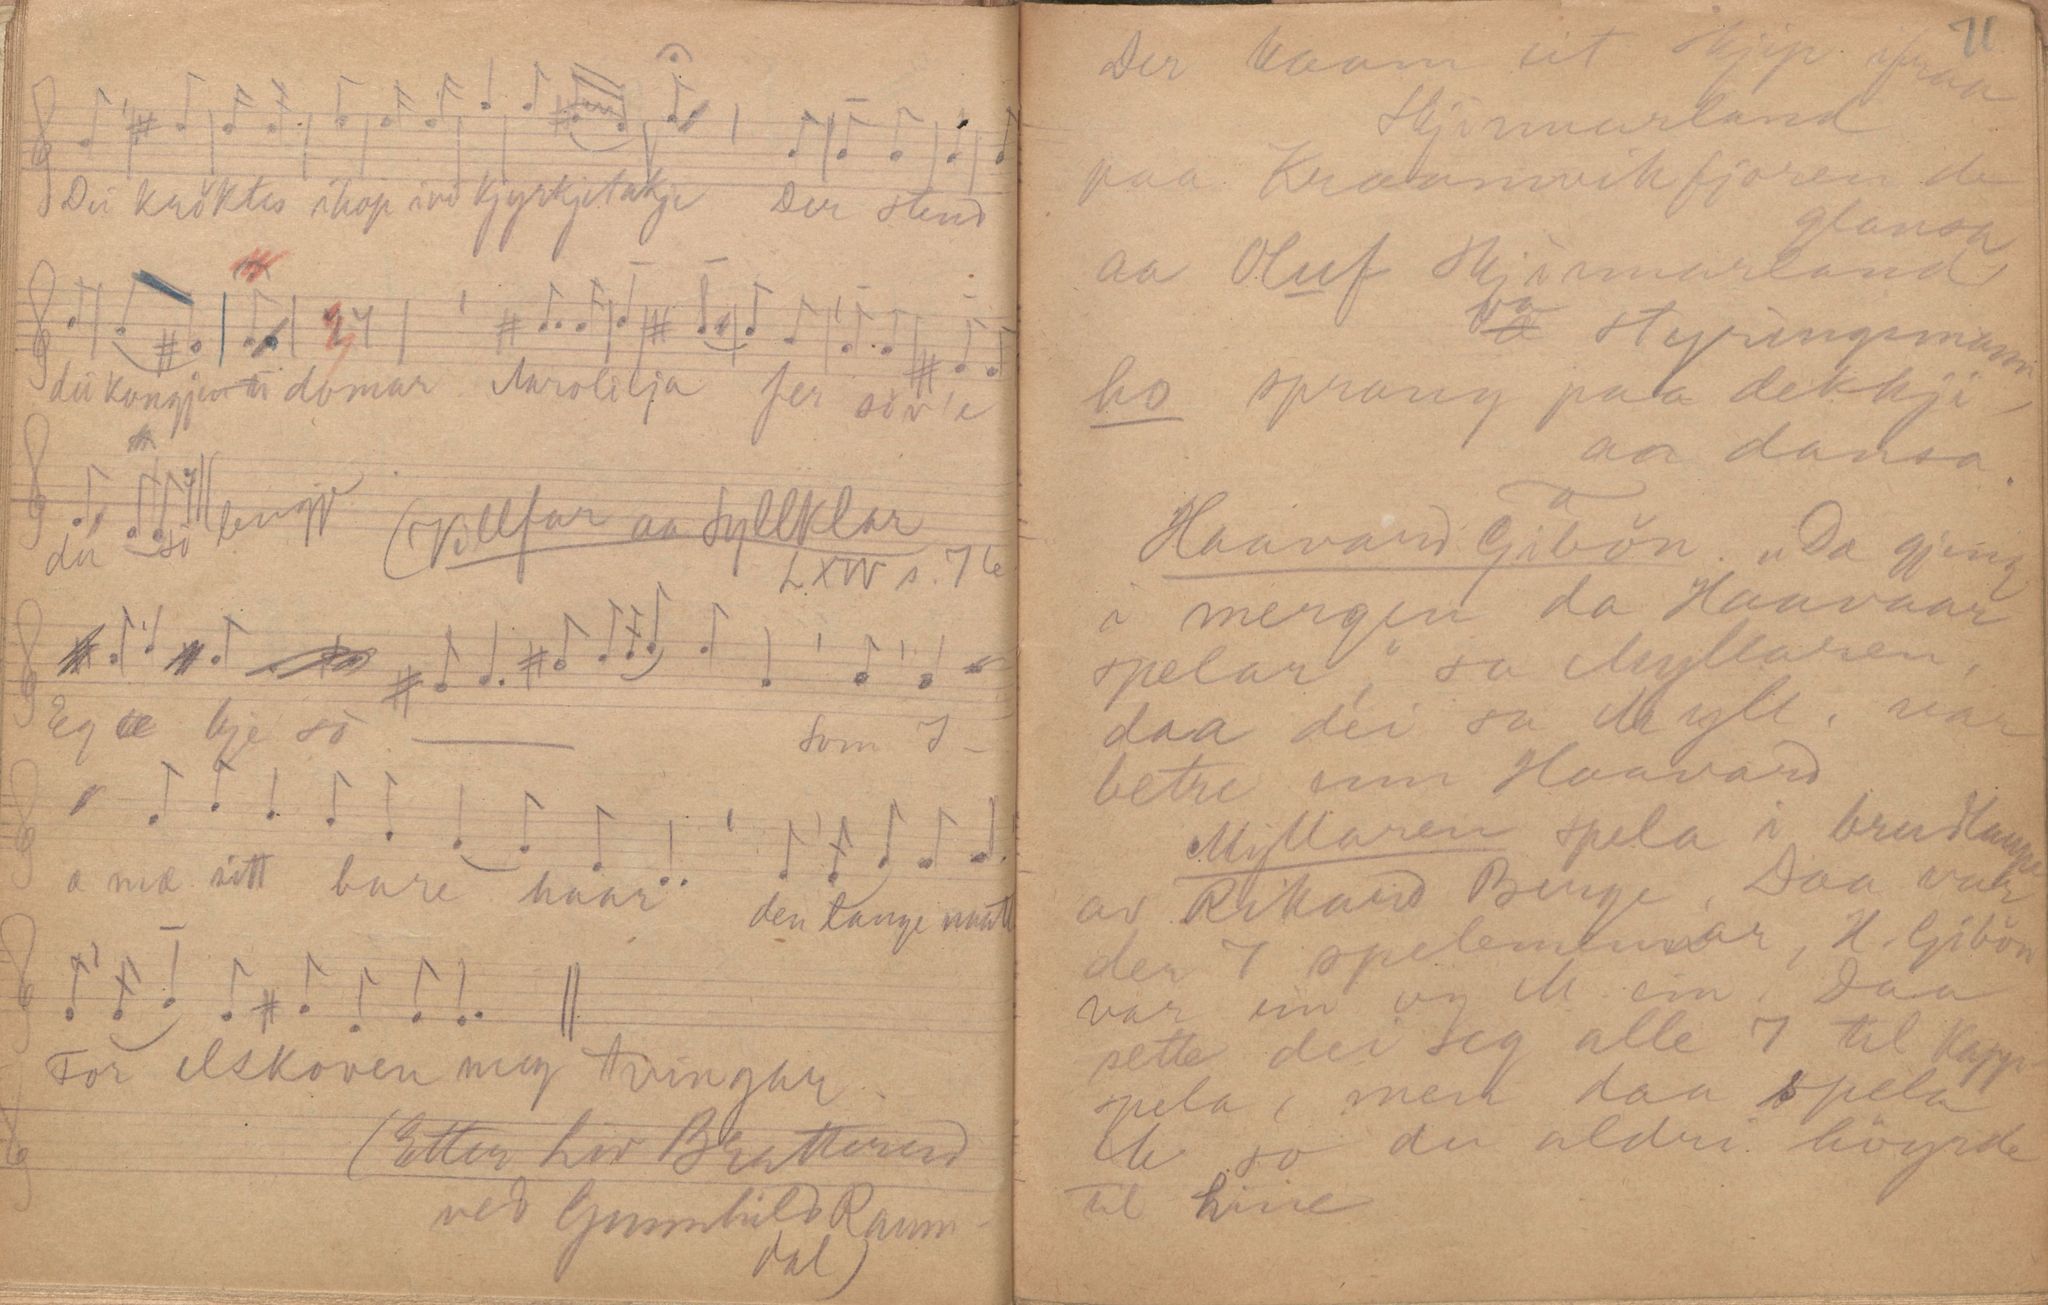 Dei kröktes ihop ivi kjyrkjetakje Der stend
dei kongjen ti domar Aarolilja fer söv'e
du so lengje (Villfar aa Syllklar
LXIV s. 76
Eg æ kje so som I-
a mæ sitt bare haar den lange natt
For elskoven meg tvingar.
(Etter Liv Bratterud
ved Gunnhild Raum-
dal)
71
Der kaam eit skjip ifraa
Skjörmarland
paa Kraamvikfjoren de
glansa
aa Oluf Skjörmarland,
va styringsmann
ho sprang paa dekkji,
aa dansa.
Haavard Gibön. "Da gjeng
i mergen da Haavaar
spelar," sa Myllaren,
daa dei sa Myll. var
betre enn Haavard
Myllaren spela i brudlaupe
av Rikard Berge. Daa var
der 7 spelemennar, H. Gibön
var ein og M. ein. Daa
sette dei seg alle 7 til kapp-
spela, men daa spela
M. so du aldri höyrde
til hine